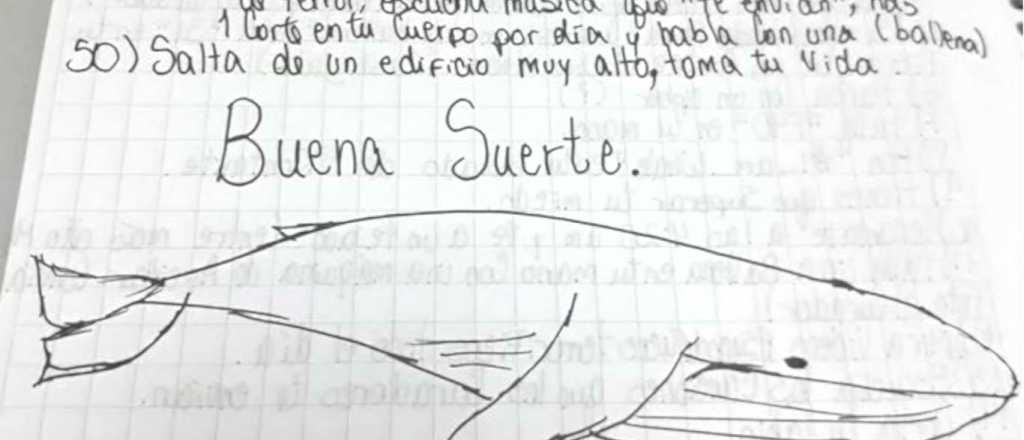 terror, escucha música que "te envían", has
1 Corte en tu cuerpo por día y habla con una (ballena)
50) Salta de un edificio muy alto, toma tu vida.
Buena Suerte.